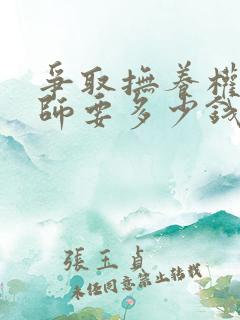 爭取撫養權
師要多少錢
張玉貞
未經同意禁止轉載